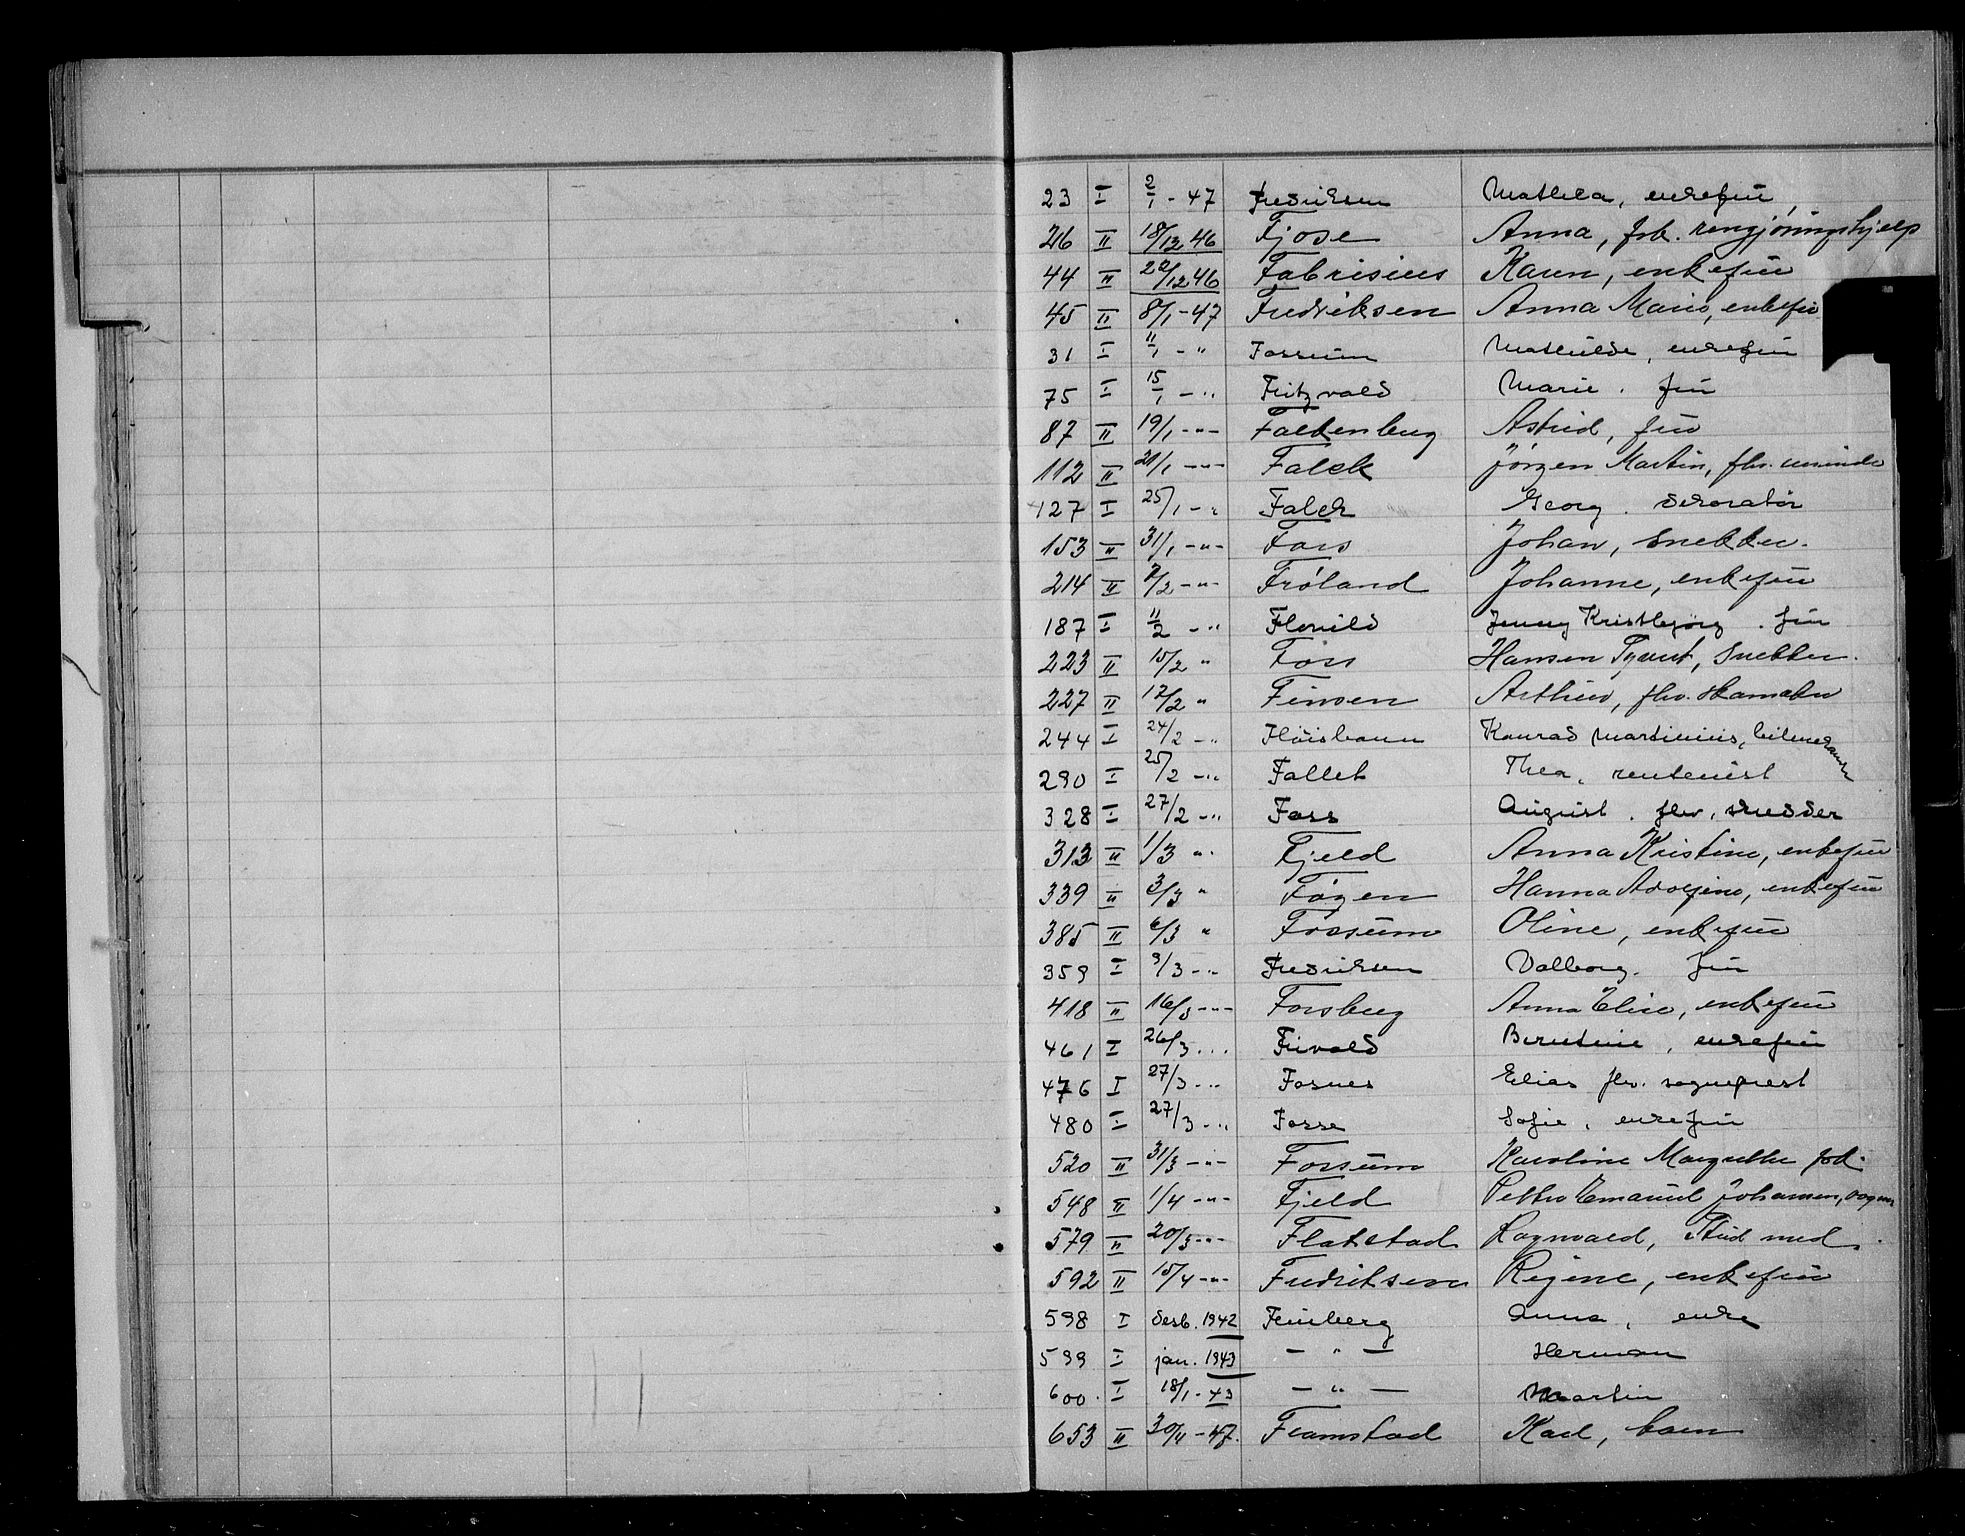 23 I 2/1 - 47 Fredriksen Mathea, enkefru
26 II 18/12 46 Fjose Anna, frk. rengjøringshjelp
44 II 20/12 46 Fabrisius Karen, enkefru
45 II 8/1 - 47 Fredriksen Anna Marie, enkefru
31 I 11/1 - " Fossum Mathilde, enkefru
75 I 15/1 - " Fritzvald Marie. fru
87 II 19/1 - " - Falkenberg Astrid, fru
112 II 21/1 - " - Falck Jörgen Martin, fhv.
127 I 25/1 - " Falck Georg. dekoratør
153 II 31/1 - " - Foss Johan, Snekker.
214 II /2 - " - Frøland Johanne, enkefru
187 I 11/2 - " Flovild Jenny Kristbjørg. fru
223 II 15/2 " Foss Hansen Tyvert, Snekker.
227 II 17/2 " Finsen Arthur, fhv. skamaker
244 I 24/2 - " Fløisbonn Konrad Martinius,
290 I 25/2 - " Fallet Thea, rentenist
328 I 27/2 - " Foss August. fhv. skredder
313 II 1/3 " Fjeld Anna Kristine, enkefru
339 II 3/3 " Føyen Hanna Adolfine, enkefru
385 II 6/3 " Fossum Oline, enkefru
359 I 9/3 - " Fredriksen Valborg. fru
418 II 16/3 - " - Forsberg Anna Elise, enkefru
461 I 26/3 - " Frivold Berntine, enkefru
476 I 27/3 - " Fosnes Elias fhv. sogneprest
480 I 27/3 - " Fosse Sofie, enkefru
520 II 31/3 - " - Fossum Karoline Margrethe frk.
548 II 1/4 - " - Fjeld Petter Emanuel Johansen,
579 II 20/3 - " - Flatstad Ragnvald, Stud med.
592 II 15/4 - " - Fredriksen Regine, enkefru
598 I desb. 1942 Feinberg Anna, enke
599 I jan. 1943 — " — Herman
600. I 18/1 - 43 — " — Martin
653 II 30/4 - 47. Framstad Karl, barn